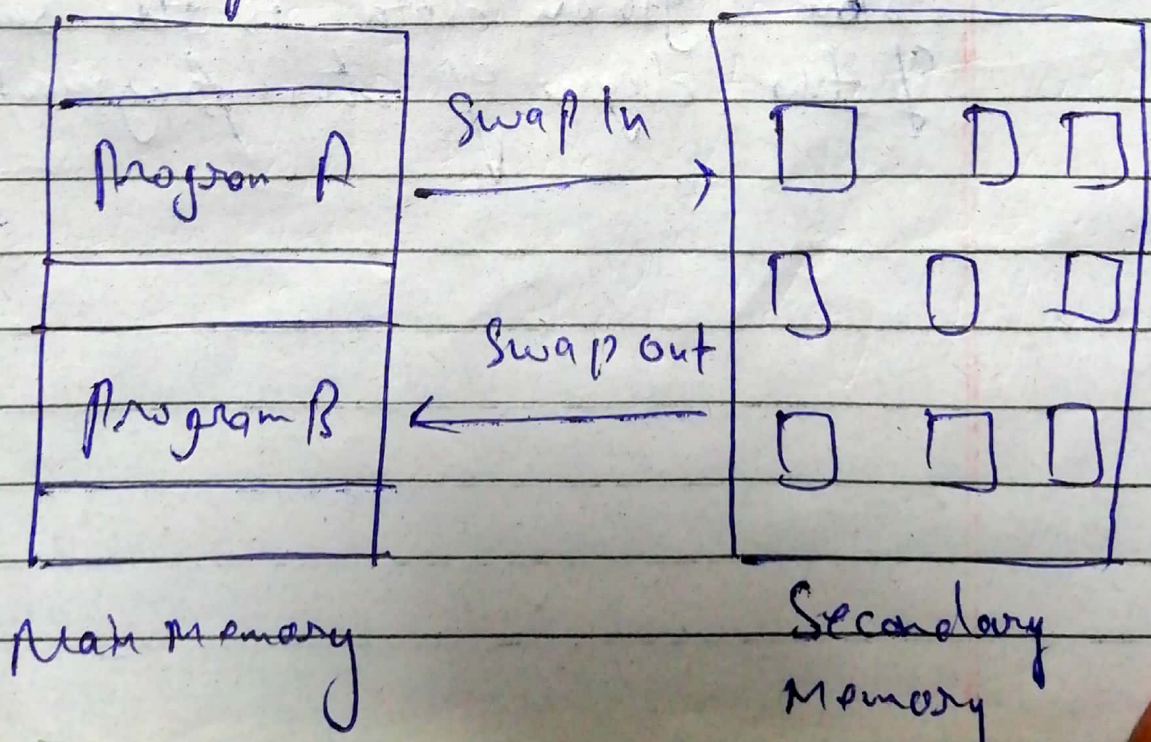 Program A
Swap In
Swap out
Program B
Main Memory
Secondary
Memory